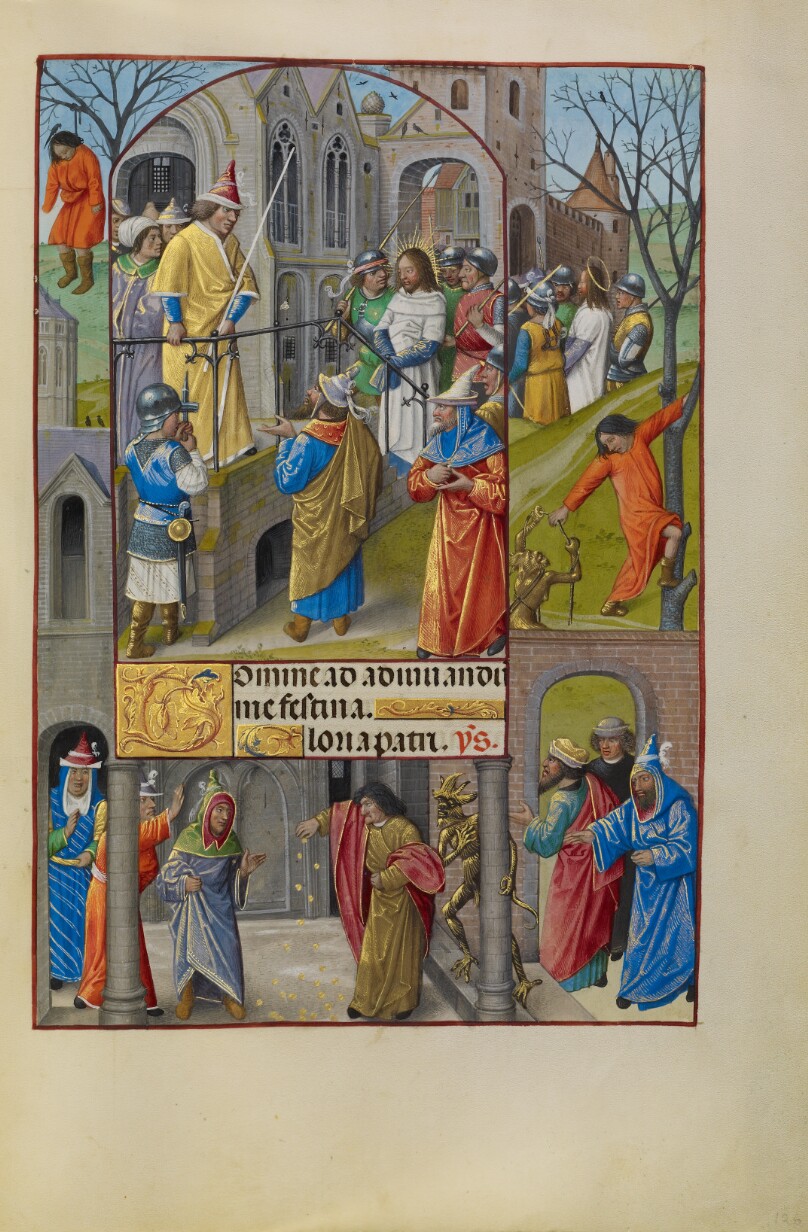 Domine ad adiuuandū
me festina.
Gloria patri. v̓s.